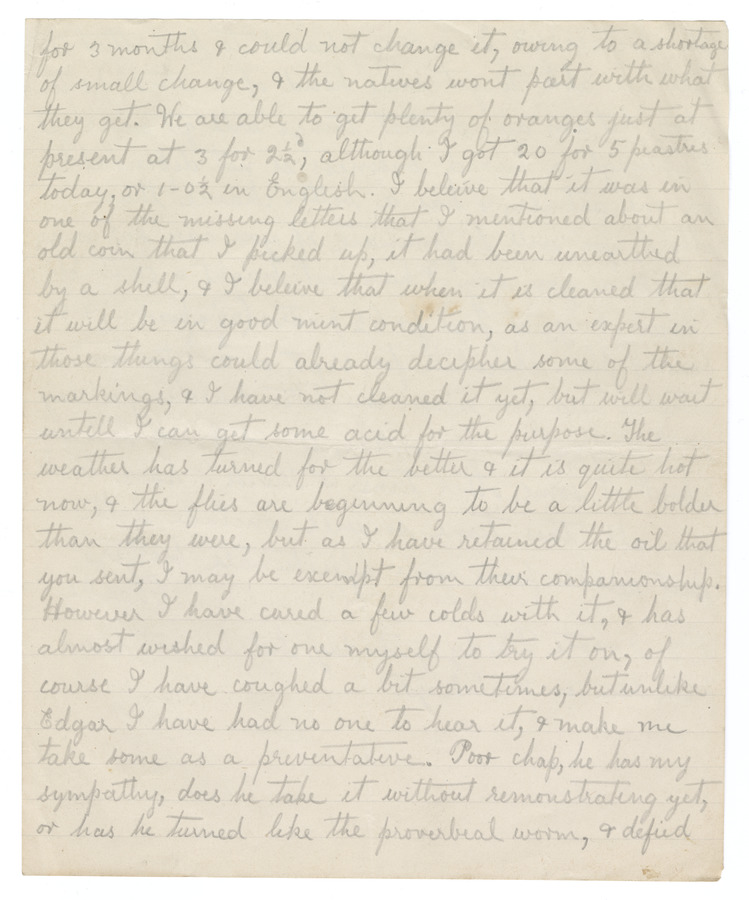 for 3 months & could not change it, owing to a shortage
of small change, & the natives wont part with what
they get. We are able to get plenty of oranges just at
present at 3 for 2½d, although I got 20 for 5 piastres
today, or 1-0½ in English. I beleive that it was in
one of the missing letters that I mentioned about an
old coin that I picked up, it had been unearthed
by a shell, & I beleive that when it is cleaned that
it will be in good mint condition, as an expert in
those things could already decipher some of the
markings, & I have not cleaned it yet, but will wait
untill I can get some acid for the purpose. The
weather has turned for the better & it is quite hot
now, & the flies are beginning to be a little bolder
than they were, but as I have retained the oil that
you sent, I may be exempt from their companionship.
However I have cured a few colds with it, & has
almost wished for one myself to try it on, of
course I have coughed a bit sometimes, but unlike
Edgar I have had no one to hear it, & make me
take some as a preventative. Poor chap, he has my
sympathy, does he take it without remonstrating yet,
or has he turned like the proverbial worm, & defied